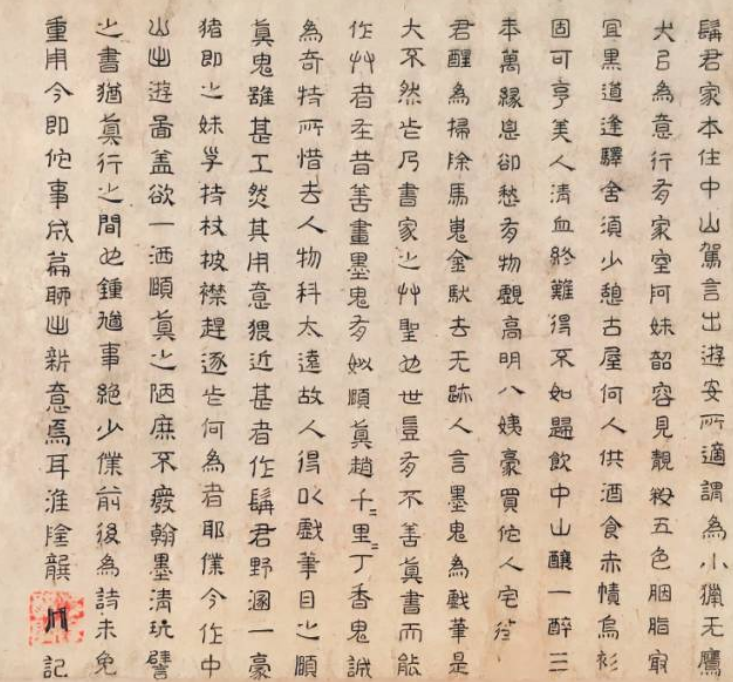 髯君家本住中山駕言出遊安所適謂為小獵无鷹
犬㠯為意行有家室阿妹韶容見靚糚五色胭脂最
宜黑道逢驛舍須少憩古屋何人供酒食赤幘烏衫
固可亨美人清血終難得不如歸飲中山釀一醉三
年萬緣息卻愁有物覷高明八姨豪買佗人宅待
君醒為掃除馬嵬金馱去无跡人言墨鬼為戲筆是
大不然此乃書家之艸聖也世豈有不善真書而能
作艸者在昔善畫墨鬼有姒頤真趙千〻里〻丁香鬼誠
為奇特所惜去人物科太遠故人得以戲筆目之頤
真鬼雖甚工然其用意猥近甚者作髯君野溷一豪
猪即之妹子持杖披襟趕逐此何為者耶僕今作中
山出遊圖蓋欲一洒頤真之陋庶不廢翰墨清玩譬
之書猶真行之間也鍾馗事絕少僕前後為詩未免
重用今即佗事成篇聊出新意焉耳淮陰龔開記